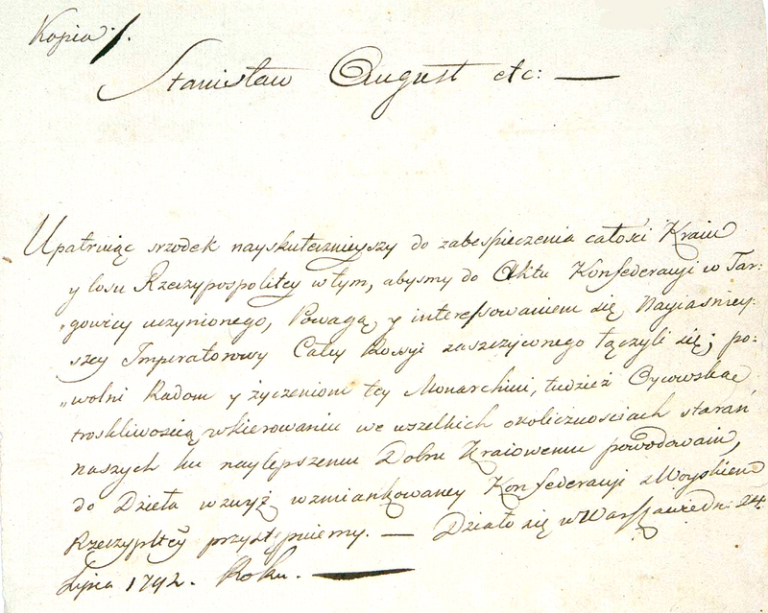 Kopia.
Stanisław August etc: —
Upatruiąc srzodek nayskutecznieyszy do zabespieczenia całości Kraiu
y losu Rzeczypospolitey w tym, abysmy do Aktu Konfederacyi w Tar:
„gowicy uczynionego, Powagą y interessowaniem się Nayiaśniey:
szey Imperatorowy Całey Rossyi zaszczyconego łączyli się; po:
„wolni Radom y życzeniom tey Monarchini, tudzież Oycowską
troskliwością w kierowaniu we wszelkich okolicznościach starań
naszych ku naylepszemu Dobru Kraiowemu powodowani,
do Dzieła wzwyż wzmiankowaney Konfederacyi z Woyskiem
Rzeczypltey przystępuiemy. — Działo się w Warszawie dn: 24.
Lipca 1792. Roku. —